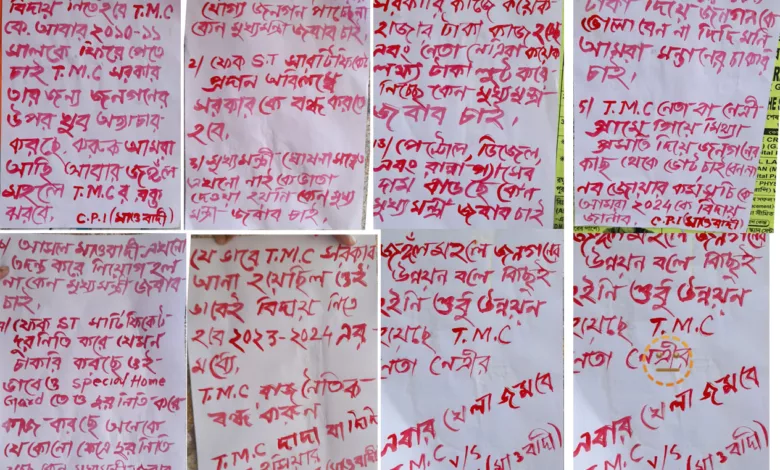 বিদায় নিতে হবে T.M.C
কে. আবার ২০১০-১১
সালকে ফিরে পেতে
চাই T.M.C সরকার
তার জন্য জনগনের
উপর খুব অত্যাচার
করছে. করুক আমরা
আছি আবার জঙ্গল
মহলে T.M.C র রক্ত
ঝরবে. C.P.I (মাওবাদী)
যোগ্য জনগন পাচ্ছেনা
কেন মুখ্যমন্ত্রী জবাব চাই.
২) ফেক ST সার্টিফিকেট
প্রদান অবিলম্বে
সরকার কে বন্ধ করতে
হবে.
৩) মুখ্যমন্ত্রী ঘোষনা
এখনো
দেওয়া হয়নি কেন মুখ্য
মন্ত্রী জবাব চাই.
সরকারি কাজে কয়েক
হাজার টাকা কাজ হলে
এবং নেতা নেত্রিরা কয়েক
লক্ষ্য টাকা লুট করে
নিচ্ছে কেন মুখ্যমন্ত্রী
জবাব চাই
পেট্রোল, ডিজেল,
এবং রান্না গ্যাসের
দাম বাড়ছে কেন
মুখ্য মন্ত্রী জবাব চাই
টাকা দিয়ে জনগনকে
ভোলাবেন না দিদি মনি
আমরা সন্তানের চাকরি
চাই.
৫) T.M.C নেতা বা নেত্রী
গ্রামে গিয়ে মিথ্যা
প্রতিশ্রুতি দিয়ে জনগনের
কাছ থেকে ভোট চাইবেন না
নব জোয়ার কর্মসূচি কে
আমরা 2024 কে বিদায়
জানাব. C.P.I (মাওবাদী)
আসলে মাওবাদী এখনো
তদন্ত করে নিয়োগ হল
না কেন মুখ্যমন্ত্রী জবাব
চাই.
ফেক ST সার্টিফিকেট
দুর্নিতি করে যেমন
চাকরি করছে ওই
ভাবে ও Special Home
Guard তে ও দুর্নিতি করে
কাজ করছে অনেকে
যে কোনো ক্ষেত্রে দুর্নিতি
যে ভাবে T.M.C সরকার
আনা হয়েছিল ওই
ভাবেই বিদায় নিতে
হবে ২০২৩-২০২৪ এর
মধ্যে.
T.M.C রাজনৈতিক
বন্ধ করুন
T.M.C দাদা বা দিদি
হুসিয়ার (মাওবাদী)
জঙ্গলমহলে জনগনের
উন্নয়ন বলে কিছুই
হইনি শুধু উন্নয়ন
হয়েছে T.M.C
নেতা নেত্রীর
এবার খেলা জমবে
T.M.C V/S (মাওবাদী)
জঙ্গলমহলে জনগনের
উন্নয়ন বলে কিছুই
হইনি শুধু উন্নয়ন
হয়েছে T.M.C
নেতা নেত্রীর
এবার খেলা জমবে
T.M.C V/S (মাওবাদী)